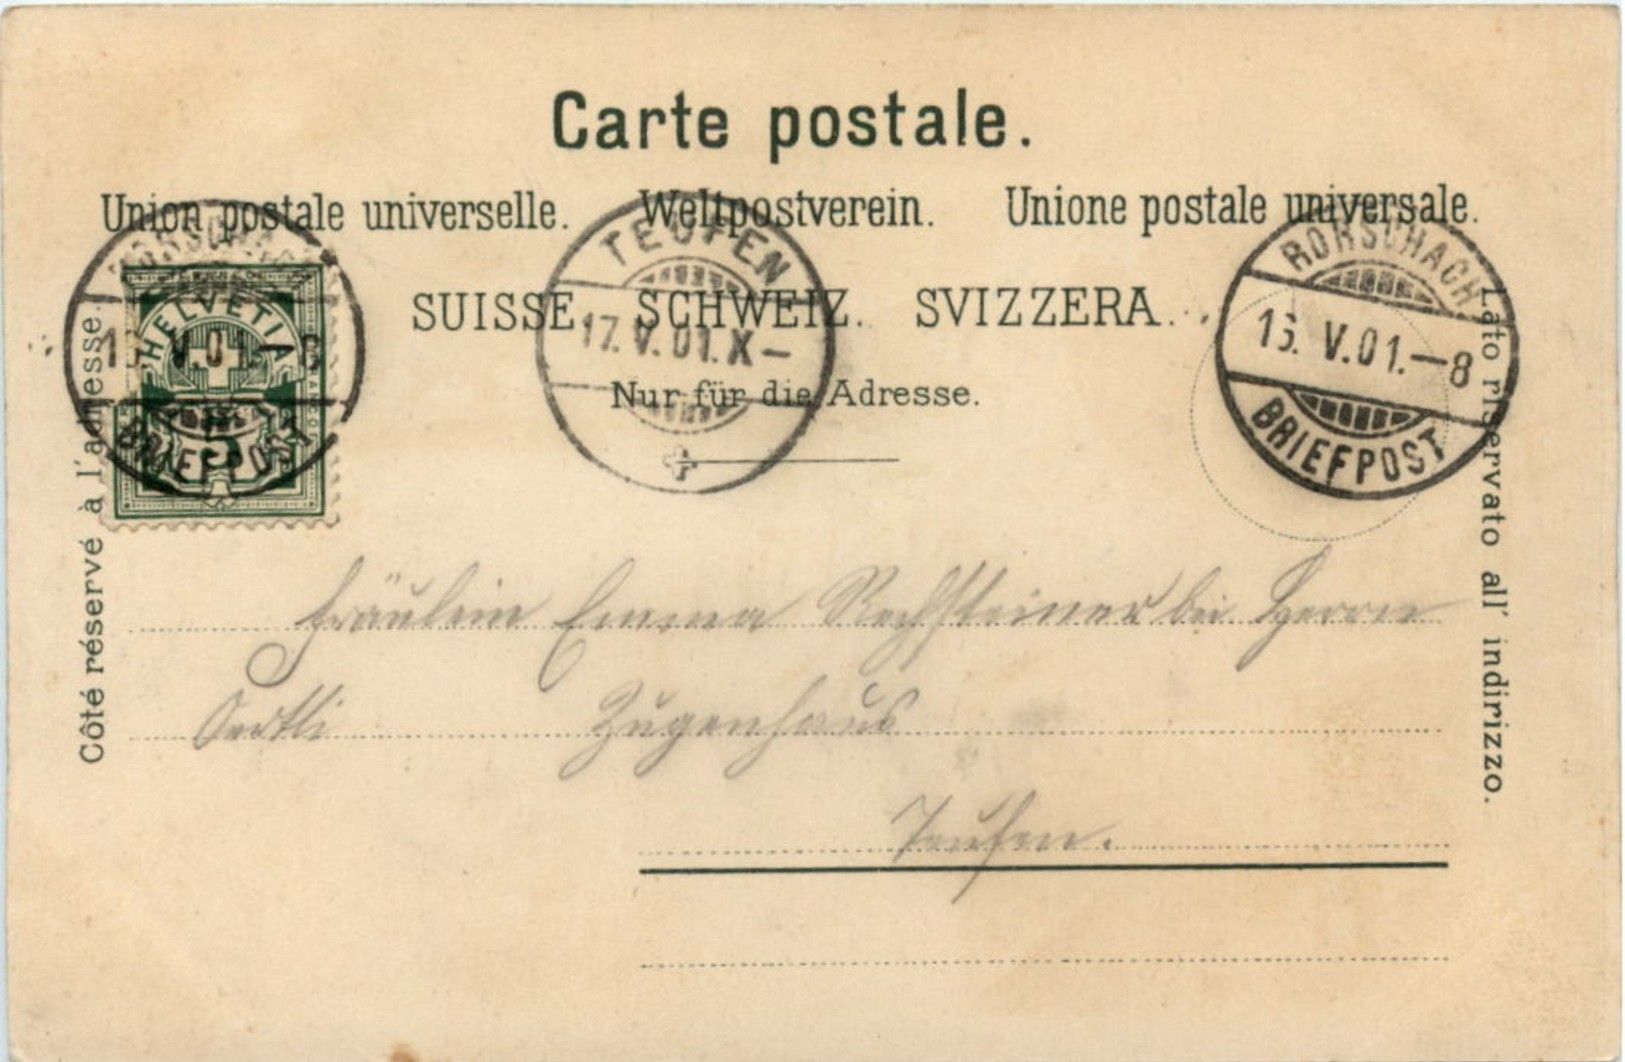 Carte postale.
Union postale universelle. Weltpostverein. Unione postale universale.
SUISSE. SCHWEIZ. SVIZZERA.
Nur für die Adresse.
Côté réservé à l'adresse.
Lato riservato all' indirizzo.
HELVETIA
FRANCO
5
RORSCHACH
V.01.-8
BRIEFPOST
TEUFEN
17.V.01.X-
RORSCHACH
16.V.01.-8
BRIEFPOST
Fräulein Emma Rechsteiner bei Herrn
Oertli Zugenhaus
Teufen.